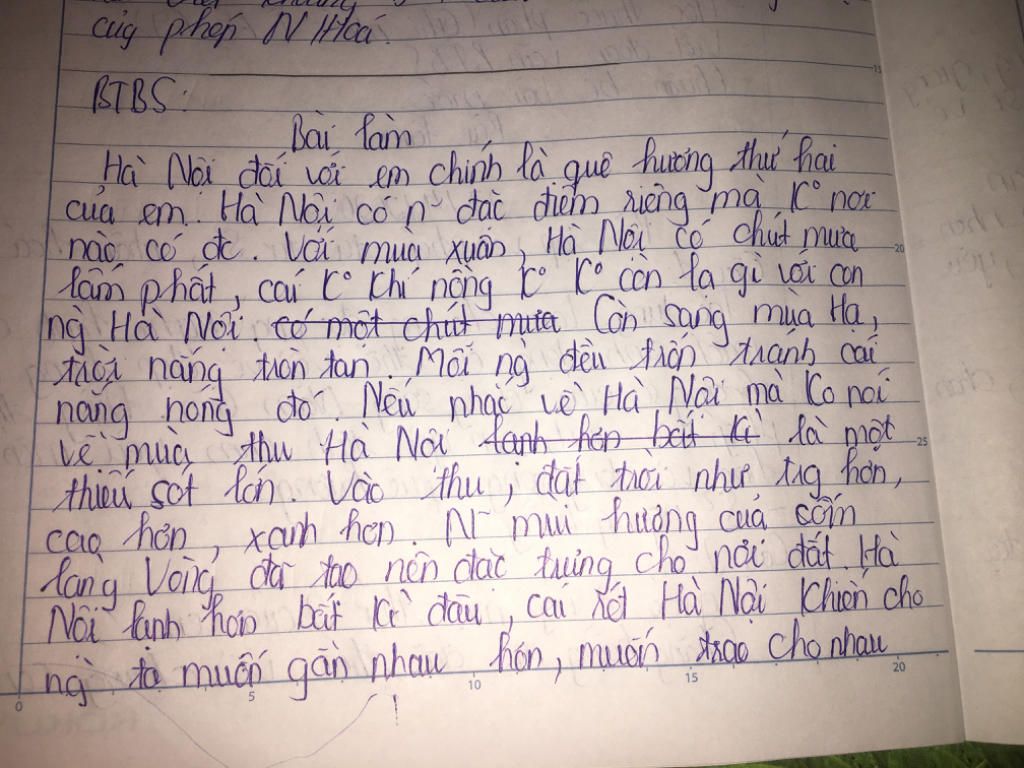 củg phép N Hoá.
BTBS:
Bài làm
Hà Nội đối với em chính là quê hương thứ hai
của em. Hà Nội có n~ đặc điểm riêng mà K° nơi
nào có đc. Với mùa xuân, Hà Nội có chút mưa
lấm phất, cái K° Khí nồng K° K° còn lạ gì với con
ng Hà Nội. có một chút mưa Còn sang mùa Hạ,
trời nắng tròn tan. Mỗi ng đều trốn tránh cái
nắng nóng đó. Nếu nhắc về Hà Nội mà Ko nói
về mùa thu Hà Nội lạnh hơn bất kì là một
thiếu sót lớn. Vào thu, đất trời như trg hơn,
cao hơn, xanh hơn. N~ mùi hương của cốm
làng Vòng đã tạo nên đặc trưng cho nơi đất Hà
Nội lạnh hơn bất Kì đâu, cái rét Hà Nội Khiến cho
ng ta muốn gần nhau hơn, muốn trao cho nhau